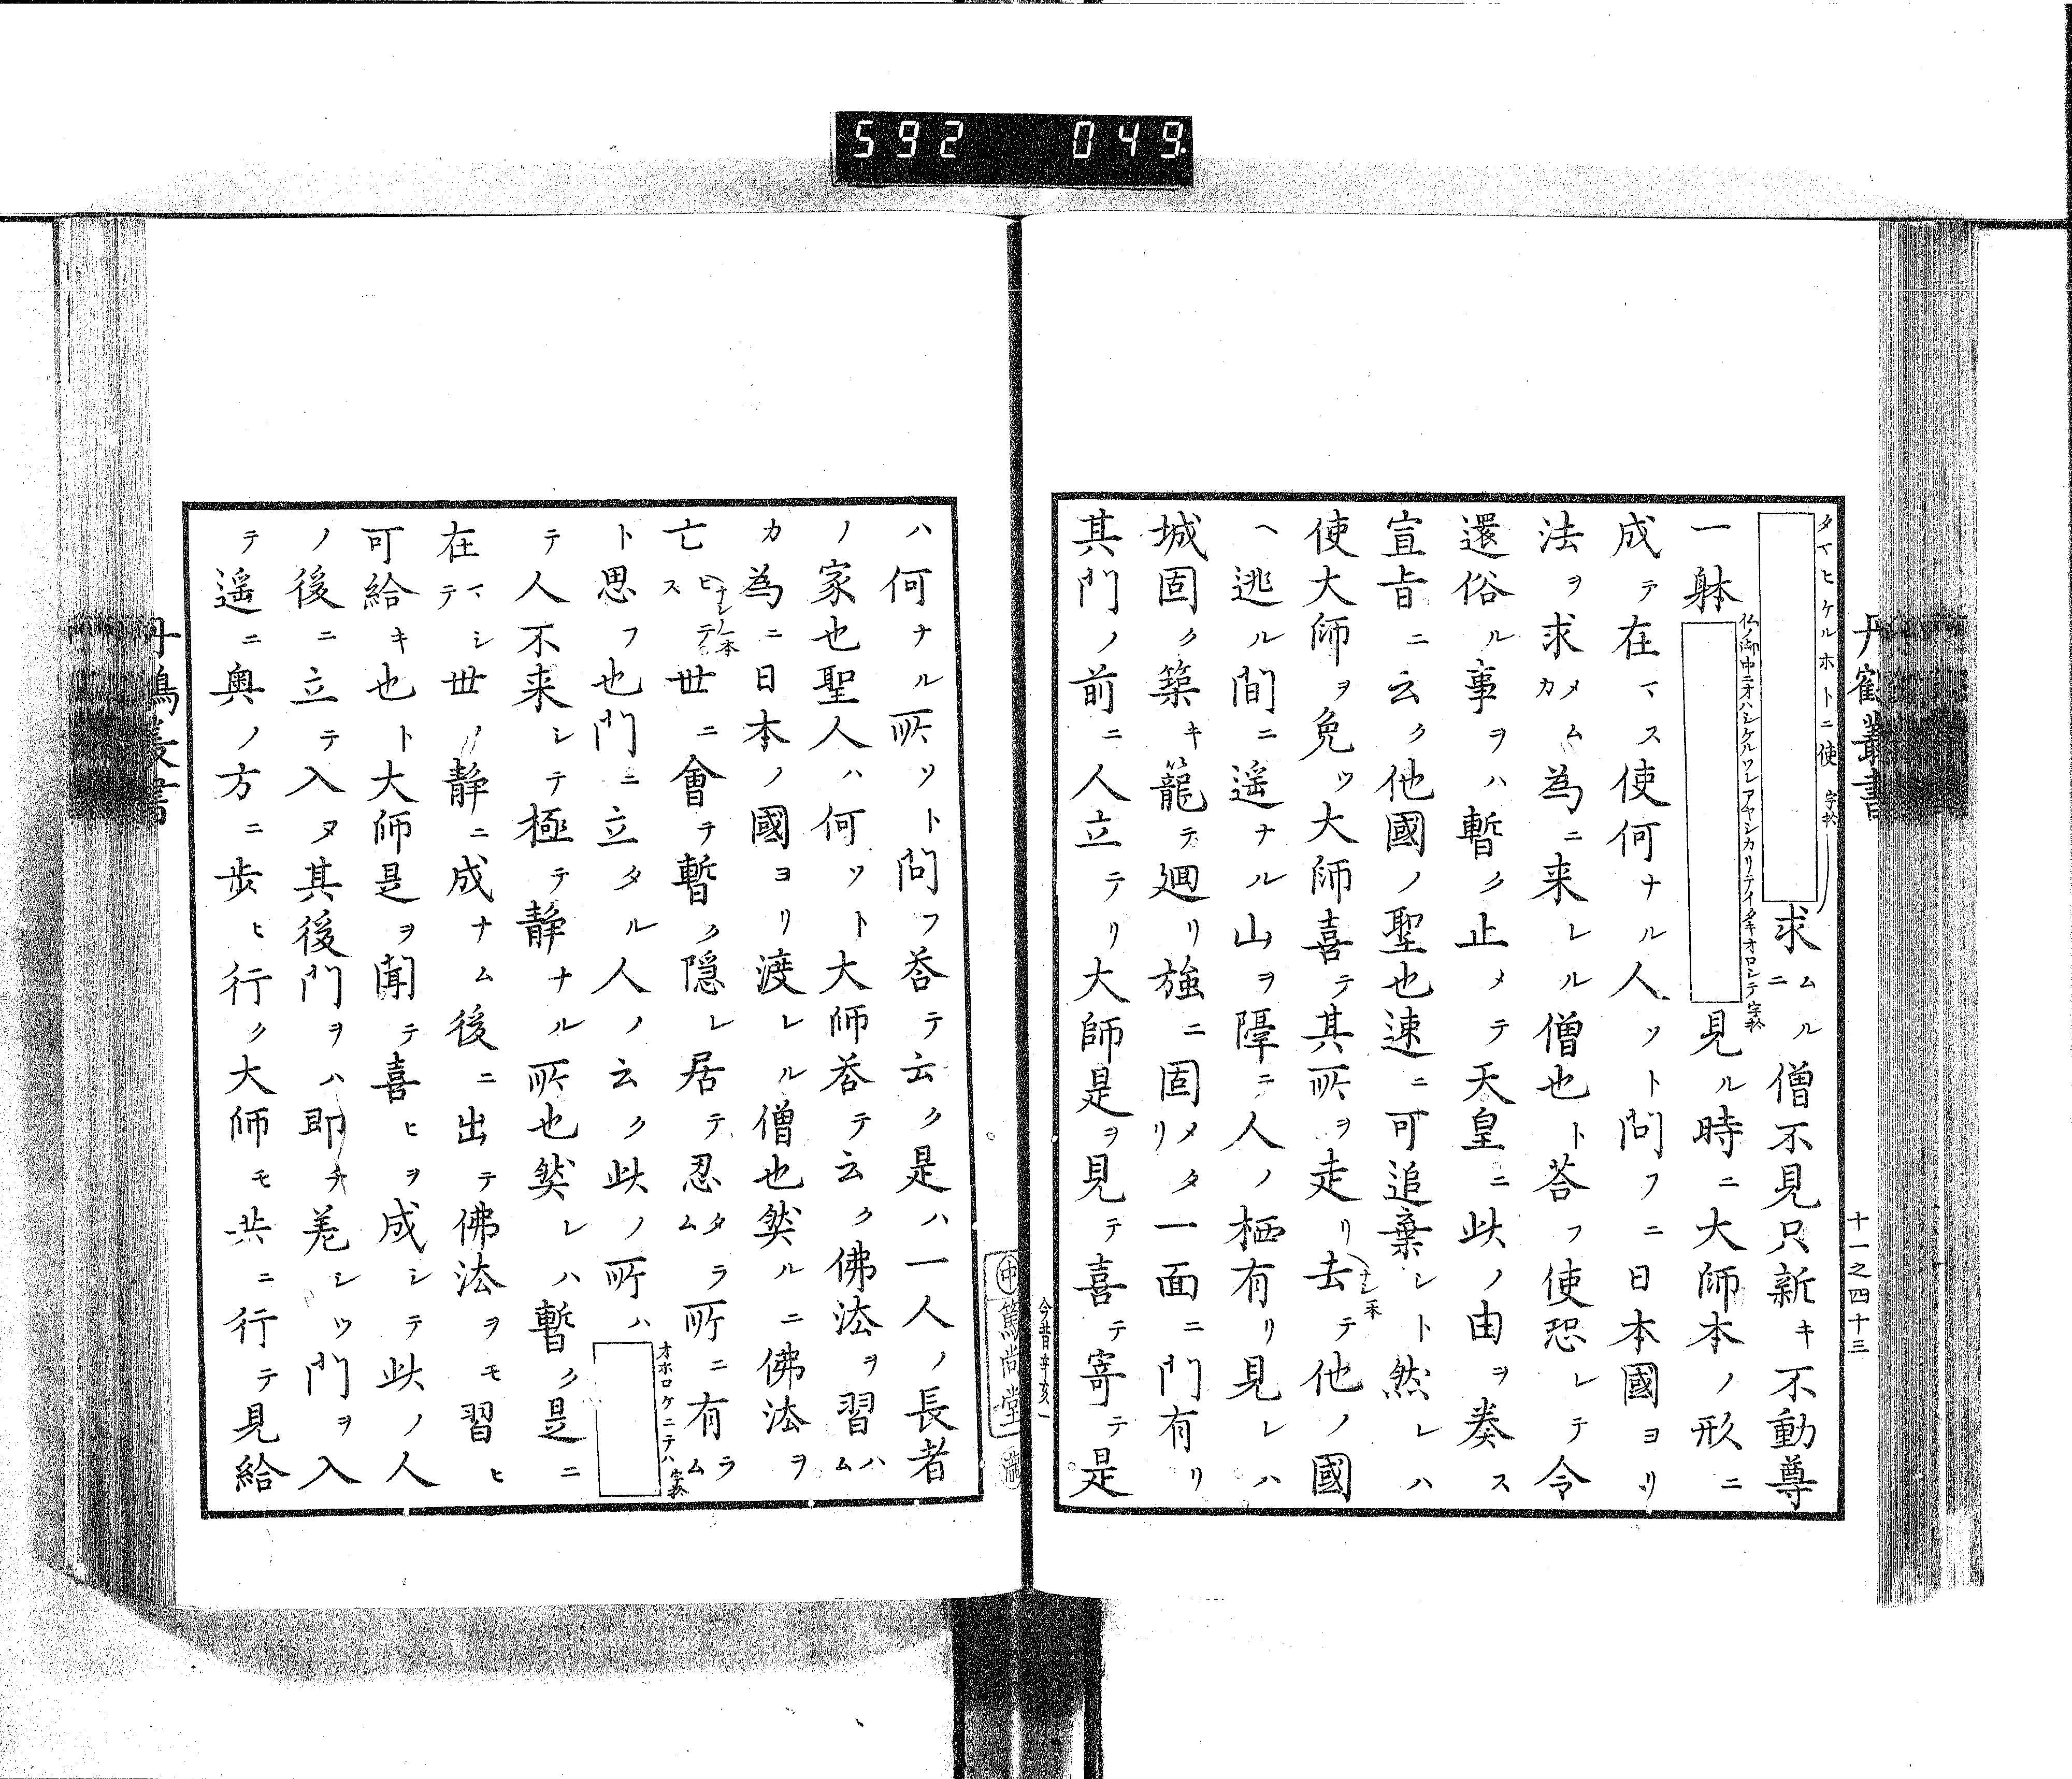 592 049
丹鶴叢書
十一之四十三
タマヒケルホトニ使 字衍
求ムルニ僧不見只新キ不動尊
一躰
仏ノ御中ニオハシケルワレアヤシカリテイタキオロシテ 字衍
見ル時ニ大師本ノ形ニ
成テ在マス使何ナル人ソト問フニ日本國ヨリ
法ヲ求メムカ為ニ来レル僧也ト荅フ使恐レテ令
還俗ル事ヲハ暫ク止メテ天皇ニ此ノ由ヲ奏ス
宣旨ニ云ク他國ノ聖也速ニ可追棄シト然レハ
使大師ヲ免ツ大師喜テ其所ヲ走リ去テ他ノ國
ナシ一本
ヘ逃ル間ニ遥ナル山ヲ障テ人ノ栖有リ見レハ
城固ク築キ籠テ廻リ強ニ固メタリ一面ニ門有リ
其門ノ前ニ人立テリ大師是ヲ見テ喜テ寄テ是
今昔辛亥一
篤尚堂
ハ何ナル所ソト問フ荅テ云ク是ハ一人ノ長者
ノ家也聖人ハ何ソト大師荅テ云ク佛法ヲ習ハム
カ為ニ日本ノ國ヨリ渡レル僧也然ルニ佛法ヲ
亡スヒテ世ニ會テ暫ク隠レ居テ忍タラム所ニ有ラム
ナシ一本
ト思フ也門ニ立タル人ノ云ク此ノ所ハ
オホロケニテハ 字衍
テ人不来シテ極テ静ナル所也然レハ暫ク是ニ
在マシテ世ノ静ニ成ナム後ニ出テ佛法ヲモ習ヒ
可給キ也ト大師是ヲ聞テ喜ヒヲ成シテ此ノ人
ノ後ニ立テ入ヌ其後門ヲハ即チ差シツ門ヲ入
テ遥ニ奥ノ方ニ歩ヒ行ク大師モ共ニ行テ見給